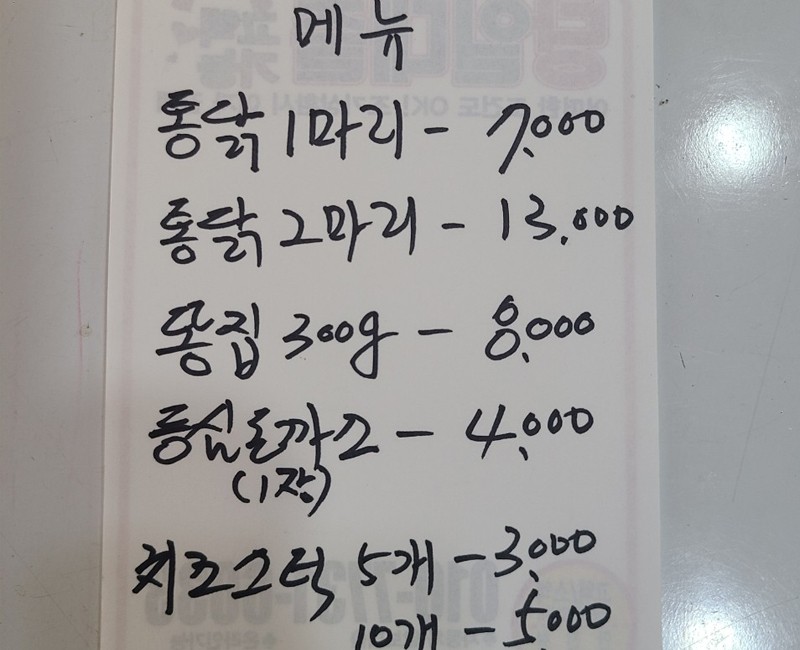 메뉴
통닭 1마리 - 7,000
통닭 2마리 - 13,000
똥집 300g - 8,000
등심돈까스 - 4,000
(1장)
치즈스틱 5개 - 3,000
10개 - 5,000